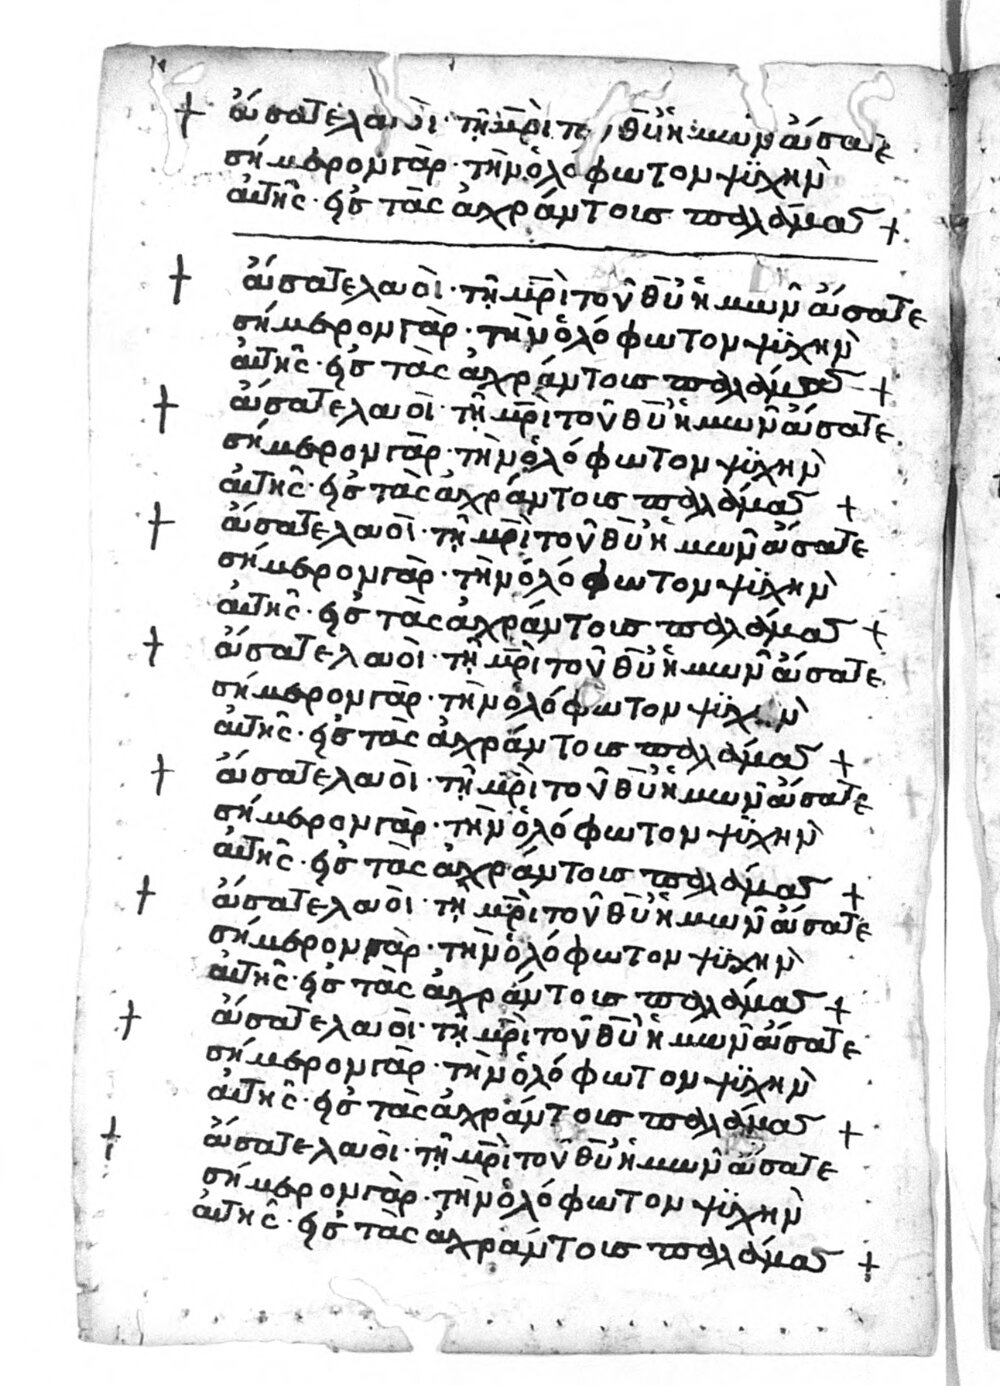 + ἄσατε λαοὶ · τῇ μρ̅ὶ τ θ̅υ̅ ἡμῶν ἄσατε
σήμερον γὰρ · τὴν ὁλόφωτον ψϋχὴν
αὐτῆς · εἰς τὰς ἀχράντοις παλάμας +
+ ἄσατε λαοὶ · τῇ μρ̅ὶ τοῦ θ̅υ̅ ἡμῶν ἄσατε
σήμερον γὰρ · τὴν ὁλόφωτον ψϋχὴν
αὐτῆς · εἰς τὰς ἀχράντοις παλάμας +
+ ἄσατε λαοὶ · τῇ μρ̅ὶ τοῦ θ̅υ̅ ἡμῶν ἄσατε
σήμερον γὰρ · τὴν ὁλόφωτον ψϋχὴν
αὐτῆς · εἰς τὰς ἀχράντοις παλάμας +
+ ἄσατε λαοὶ · τῇ μρ̅ὶ τοῦ θ̅υ̅ ἡμῶν ἄσατε
σήμερον γὰρ · τὴν ὁλόφωτον ψϋχὴν
αὐτῆς · εἰς τὰς ἀχράντοις παλάμας +
+ ἄσατε λαοὶ · τῇ μρ̅ὶ τοῦ θ̅υ̅ ἡμῶν ἄσατε
σήμερον γὰρ · τὴν ὁλόφωτον ψϋχὴν
αὐτῆς · εἰς τὰς ἀχράντοις παλάμας +
+ ἄσατε λαοὶ · τῇ μρ̅ὶ τοῦ θ̅υ̅ ἡμῶν ἄσατε
σήμερον γὰρ · τὴν ὁλόφωτον ψϋχὴν
αὐτῆς · εἰς τὰς ἀχράντοις παλάμας +
+ ἄσατε λαοὶ · τῇ μρ̅ὶ τοῦ θ̅υ̅ ἡμῶν ἄσατε
σήμερον γὰρ · τὴν ὁλόφωτον ψϋχὴν
αὐτῆς · εἰς τὰς ἀχράντοις παλάμας +
+ ἄσατε λαοὶ · τῇ μρ̅ὶ τοῦ θ̅υ̅ ἡμῶν ἄσατε
σήμερον γὰρ · τὴν ὁλόφωτον ψϋχὴν
αὐτῆς · εἰς τὰς ἀχράντοις παλάμας +
+ ἄσατε λαοὶ · τῇ μρ̅ὶ τοῦ θ̅υ̅ ἡμῶν ἄσατε
σήμερον γὰρ · τὴν ὁλόφωτον ψϋχὴν
αὐτῆς · εἰς τὰς ἀχράντοις παλάμας +